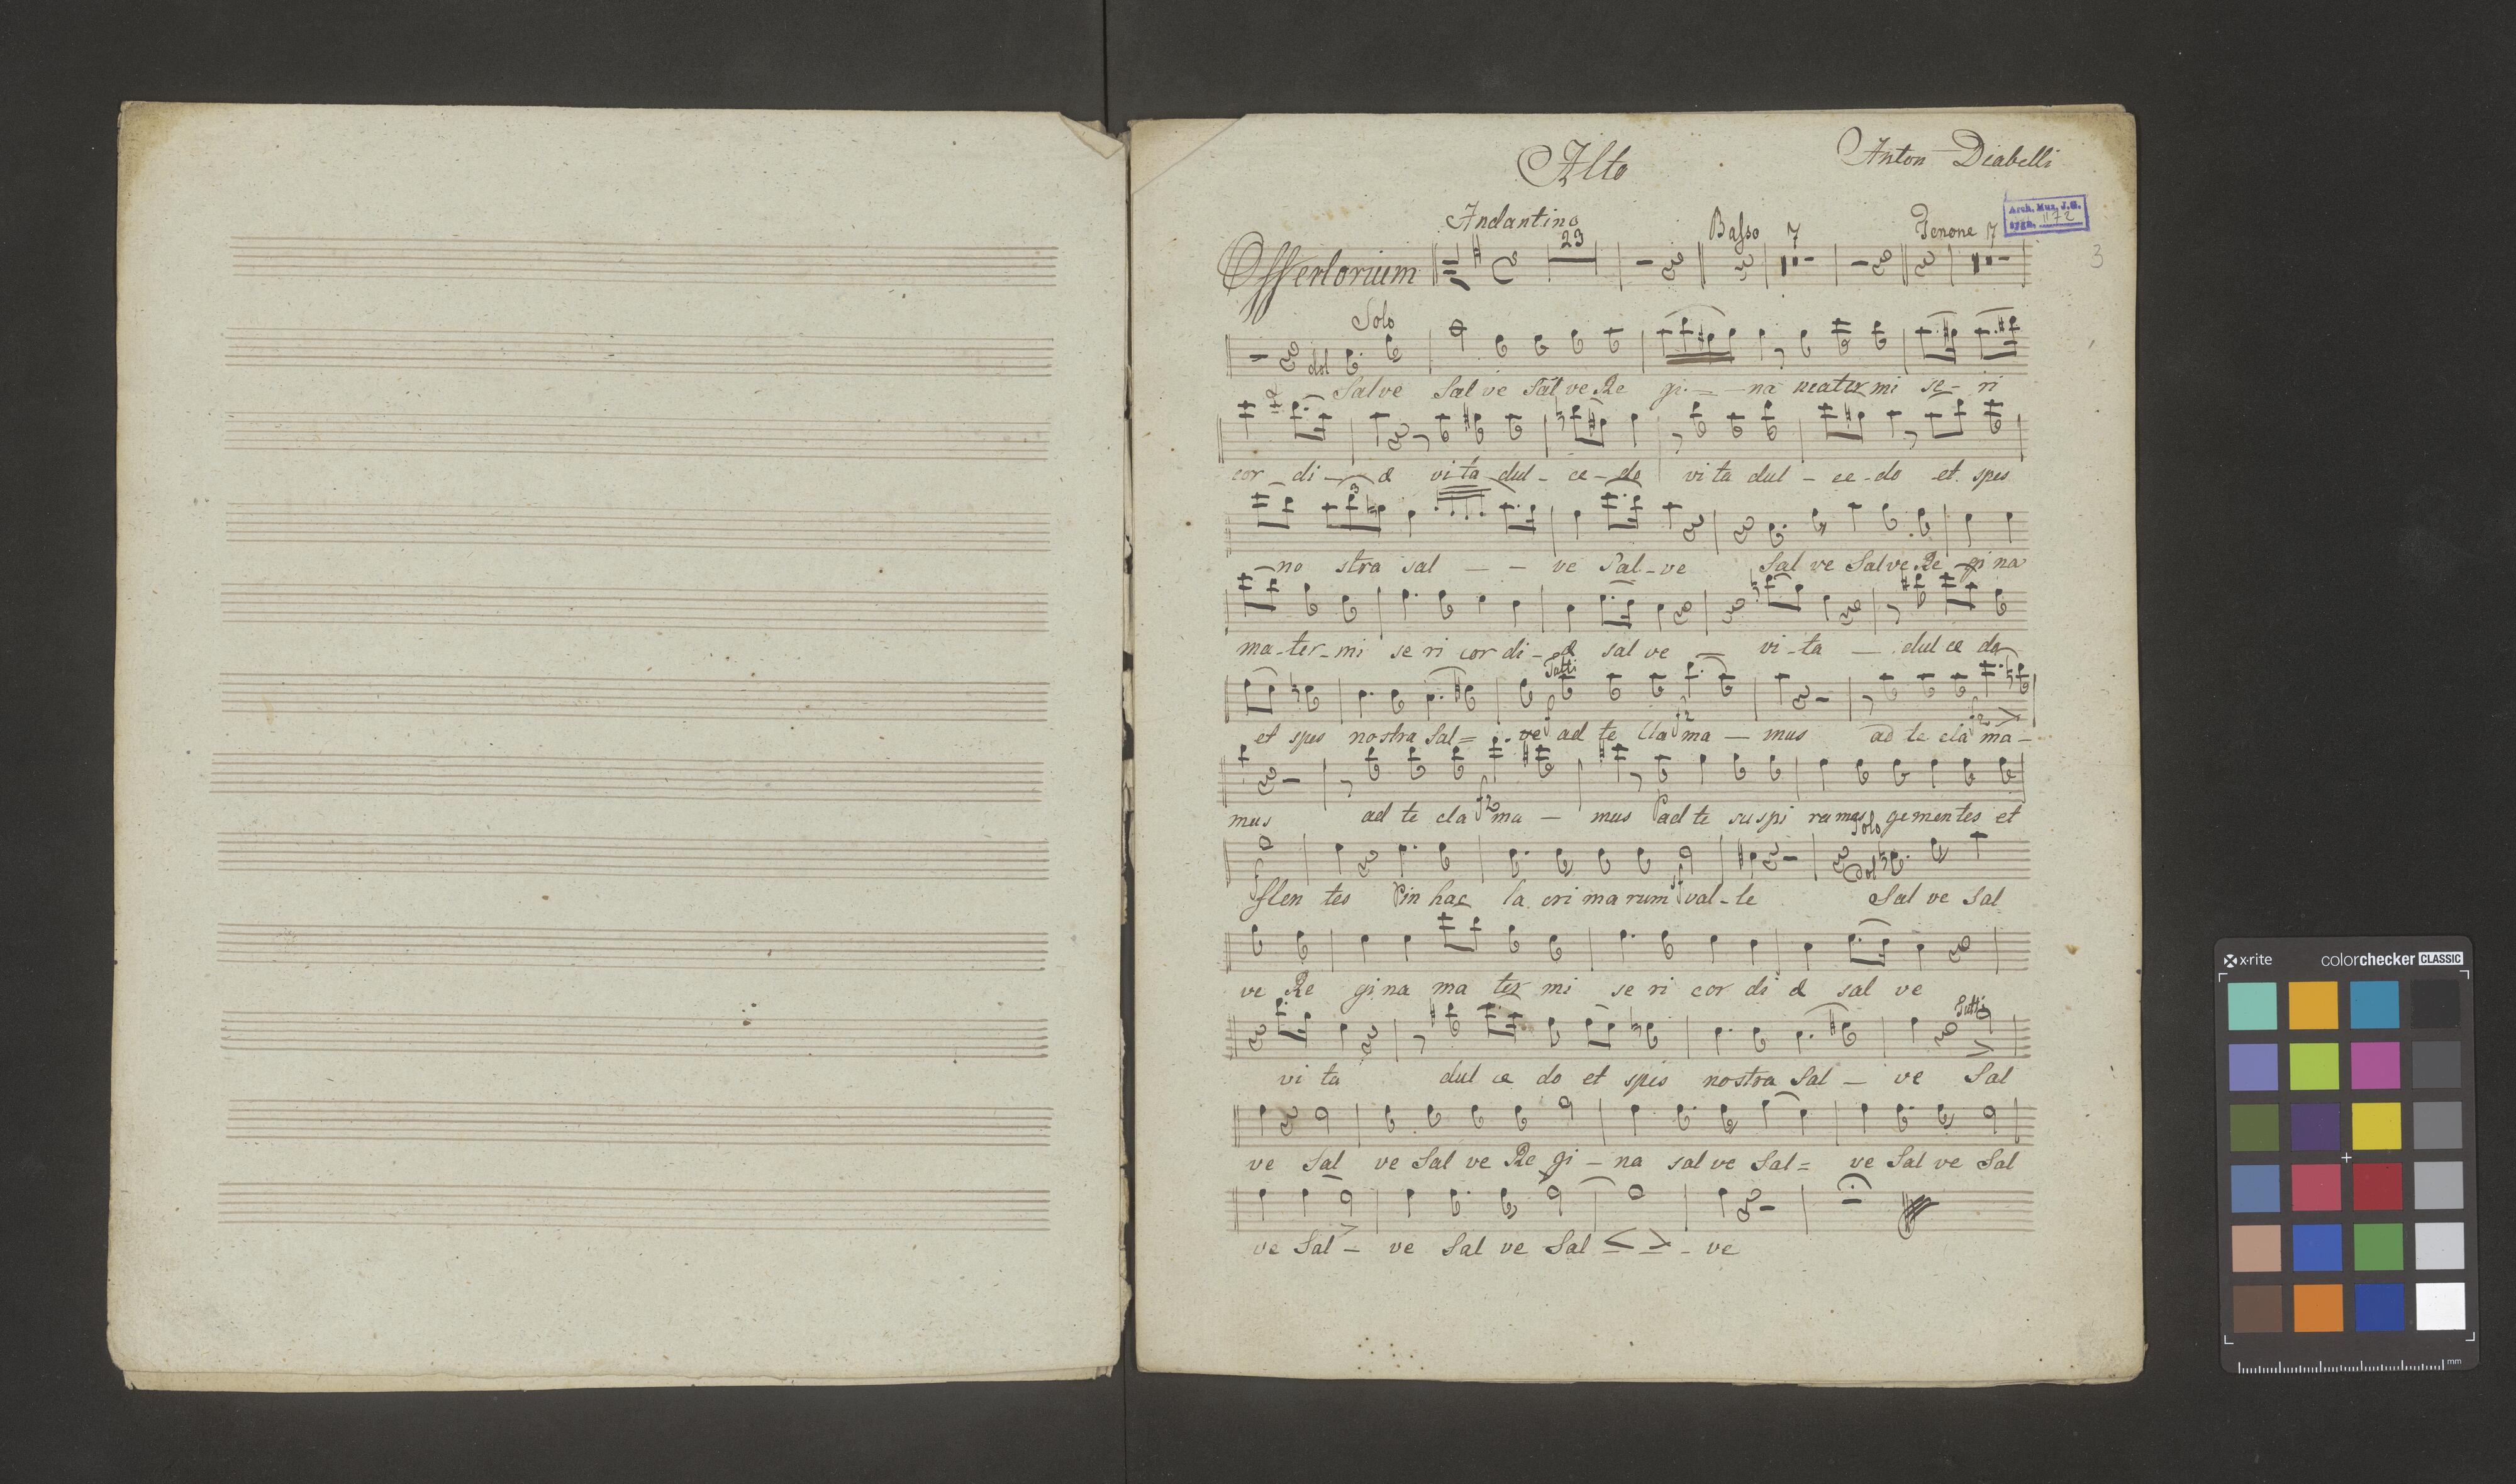 Alto
Anton Diabelli
Arch. Muz. J.G.
sygn. 1172
Andantino
23
Basso 7
Tenore 7
3
Offertorium
Solo
dol
Salve Sal ve Sal ve Re gi - na mater mi se - ri
cor - di - æ vita dul - ce - do vi ta dul - ce - do et spes
3
no stra sal - - ve Sal - ve Sal ve Salve Re - gi na
ma - ter - mi se ri cor di - æ sal ve = vi - ta - dul ce do
Tutti
et spes nostra Sal = ve ad te Cla ma - mus ad te cla ma -
mus ad te cla ma - mus ad te suspi ramus gementes et
Solo
Dol
flen tes in hac la cri ma rum val - le Sal ve Sal
ve Re gi na ma ter mi se ri cor di æ sal ve
Tutti
vi ta dul ce do et spes nostra Sal - ve Sal
ve Sal ve Sal ve Re gi - na sal ve Sal = ve Sal ve Sal
ve Sal - ve Sal ve Sal - - - ve
x-rite
colorchecker CLASSIC
mm